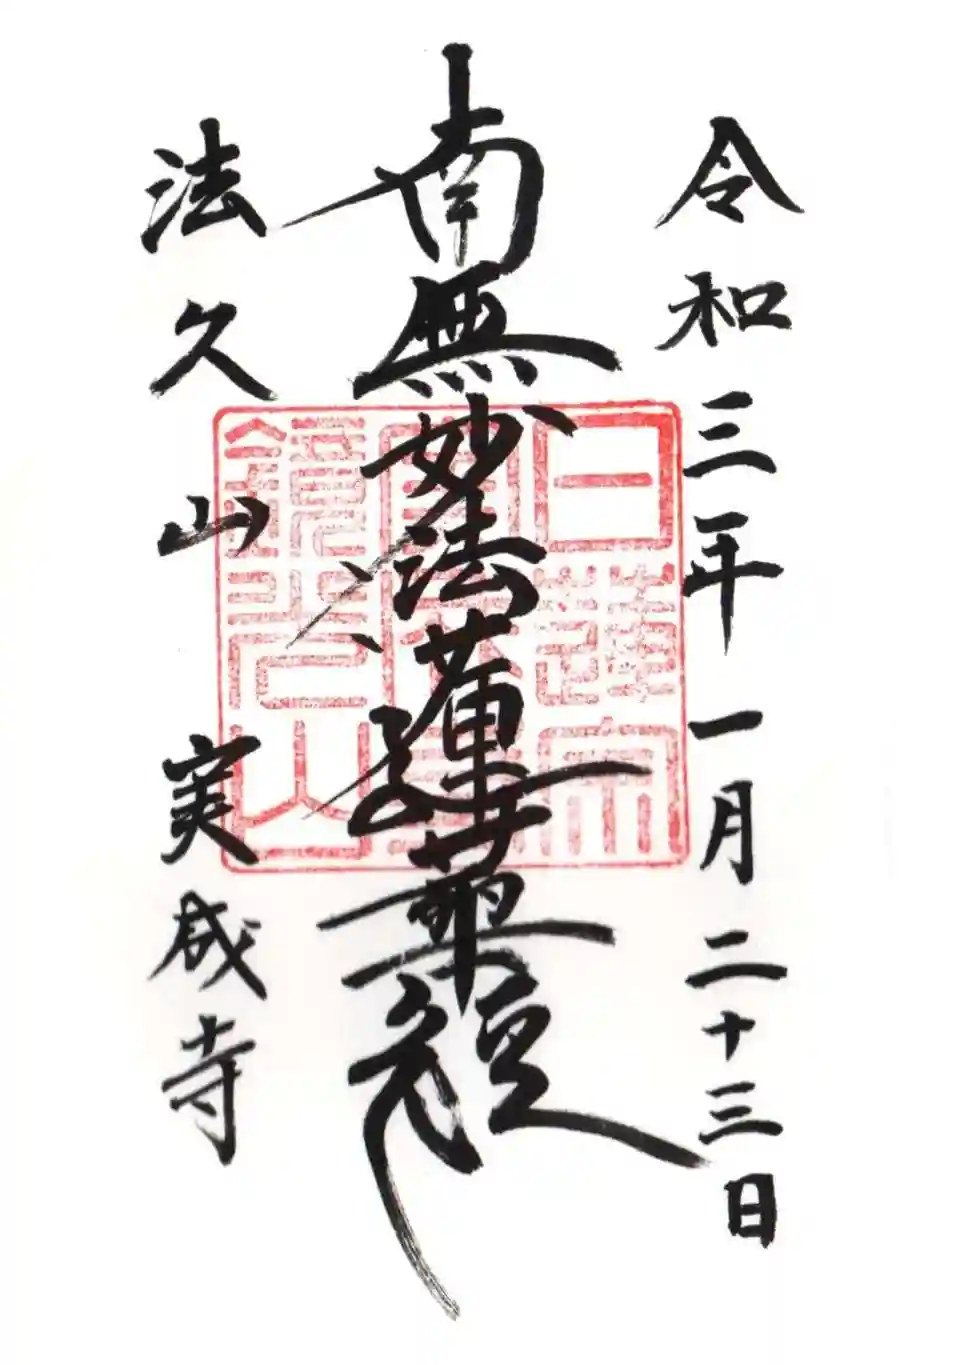 令和三年一月二十三日
南無妙法蓮華経
法久山 実成寺